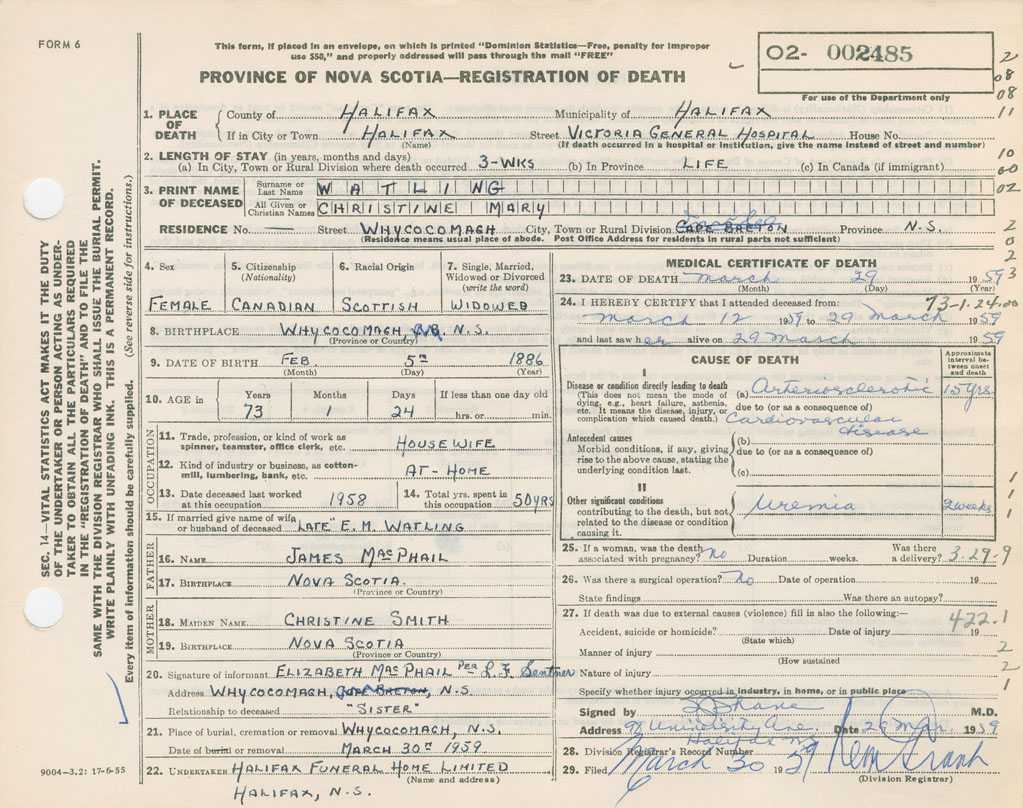 FORM 6
This form, if placed in an envelope, on which is printed "Dominion Statistics—Free, penalty for improper
use $50," and properly addressed will pass through the mail "FREE"
PROVINCE OF NOVA SCOTIA—REGISTRATION OF DEATH
02- 002485
For use of the Department only
2
08
08
11
10
00
02
2
0
2
3
SEC. 14—VITAL STATISTICS ACT MAKES IT THE DUTY
OF THE UNDERTAKER OR PERSON ACTING AS UNDER-
TAKER TO OBTAIN ALL THE PARTICULARS REQUIRED
IN THE "REGISTRATION OF DEATH" AND TO FILE THE
SAME WITH THE DIVISION REGISTRAR WHO SHALL ISSUE THE BURIAL PERMIT.
WRITE PLAINLY WITH UNFADING INK. THIS IS A PERMANENT RECORD.
Every item of information should be carefully supplied. (See reverse side for instructions.)
1. PLACE OF DEATH County of HALIFAX Municipality of HALIFAX
If in City or Town HALIFAX Street VICTORIA GENERAL HOSPITAL House No.
(Name) (If death occurred in a hospital or institution, give the name instead of street and number)
2. LENGTH OF STAY (in years, months and days)
(a) In City, Town or Rural Division where death occurred 3-WKS (b) In Province LIFE (c) In Canada (if immigrant)
3. PRINT NAME OF DECEASED Surname or Last Name WATLING
All Given or Christian Names CHRISTINE MARY
RESIDENCE No. — Street WHYCOCOMAGH City, Town or Rural Division CAPE BRETON Province N.S.
(Residence means usual place of abode. Post Office Address for residents in rural parts not sufficient)
4. Sex 5. Citizenship (Nationality) 6. Racial Origin 7. Single, Married, Widowed or Divorced (write the word)
FEMALE CANADIAN SCOTTISH WIDOWED
8. BIRTHPLACE WHYCOCOMAGH N.S.
(Province or Country)
9. DATE OF BIRTH FEB 5TH 1886
(Month) (Day) (Year)
10. AGE in Years Months Days If less than one day old
73 1 24 hrs. or min.
OCCUPATION
11. Trade, profession, or kind of work as
spinner, teamster, office clerk, etc. HOUSEWIFE
12. Kind of industry or business, as cotton-
mill, lumbering, bank, etc. AT-HOME
13. Date deceased last worked at this occupation 1958 14. Total yrs. spent in this occupation 50 YRS
15. If married give name of wife or husband of deceased "LATE" E. M. WATLING
FATHER
16. NAME JAMES MACPHAIL
17. BIRTHPLACE NOVA SCOTIA.
(Province or Country)
MOTHER
18. MAIDEN NAME CHRISTINE SMITH
19. BIRTHPLACE NOVA SCOTIA
(Province or Country)
20. Signature of informant ELIZABETH MACPHAIL PER L. F. Sentner
Address WHYCOCOMAGH, CAPE BRETON, N.S.
Relationship to deceased "SISTER"
21. Place of burial, cremation or removal WHYCOCOMAGH, N.S.
Date of burial or removal MARCH 30TH 1959
22. UNDERTAKER HALIFAX FUNERAL HOME LIMITED
(Name and address)
HALIFAX, N.S.
9004-3.2: 17-6-55
MEDICAL CERTIFICATE OF DEATH
23. DATE OF DEATH March 29 1959
(Month) (Day) (Year)
24. I HEREBY CERTIFY that I attended deceased from: 73-1-24.00
March 12 1959 to 29 March 1959
and last saw her alive on 29 March 1959
CAUSE OF DEATH
Approximate interval between onset and death
I
Disease or condition directly leading to death
(This does not mean the mode of
dying, e.g., heart failure, asthenia,
etc. It means the disease, injury, or
complication which caused death.)
(a) Arteriosclerotic 15 yrs.
due to (or as a consequence of)
Cardiovascular
disease
Antecedent causes
Morbid conditions, if any, giving
rise to the above cause, stating the
underlying condition last.
(b)
due to (or as a consequence of)
(c)
II
Other significant conditions
contributing to the death, but not
related to the disease or condition
causing it.
Uremia 2 weeks
1
1
1
25. If a woman, was the death associated with pregnancy? No Duration weeks. Was there a delivery? 3-29-9
26. Was there a surgical operation? No Date of operation 19
State findings Was there an autopsy?
27. If death was due to external causes (violence) fill in also the following:—
422.1
Accident, suicide or homicide? Date of injury 19
(State which)
Manner of injury 2
(How sustained
Nature of injury 2
Specify whether injury occurred in industry, in home, or in public place 1
Signed by Shane M.D.
Address University Ave, Date 29 Mar 1959
Halifax NS
28. Division Registrar's Record Number
29. Filed March 30 1959
(Division Registrar)